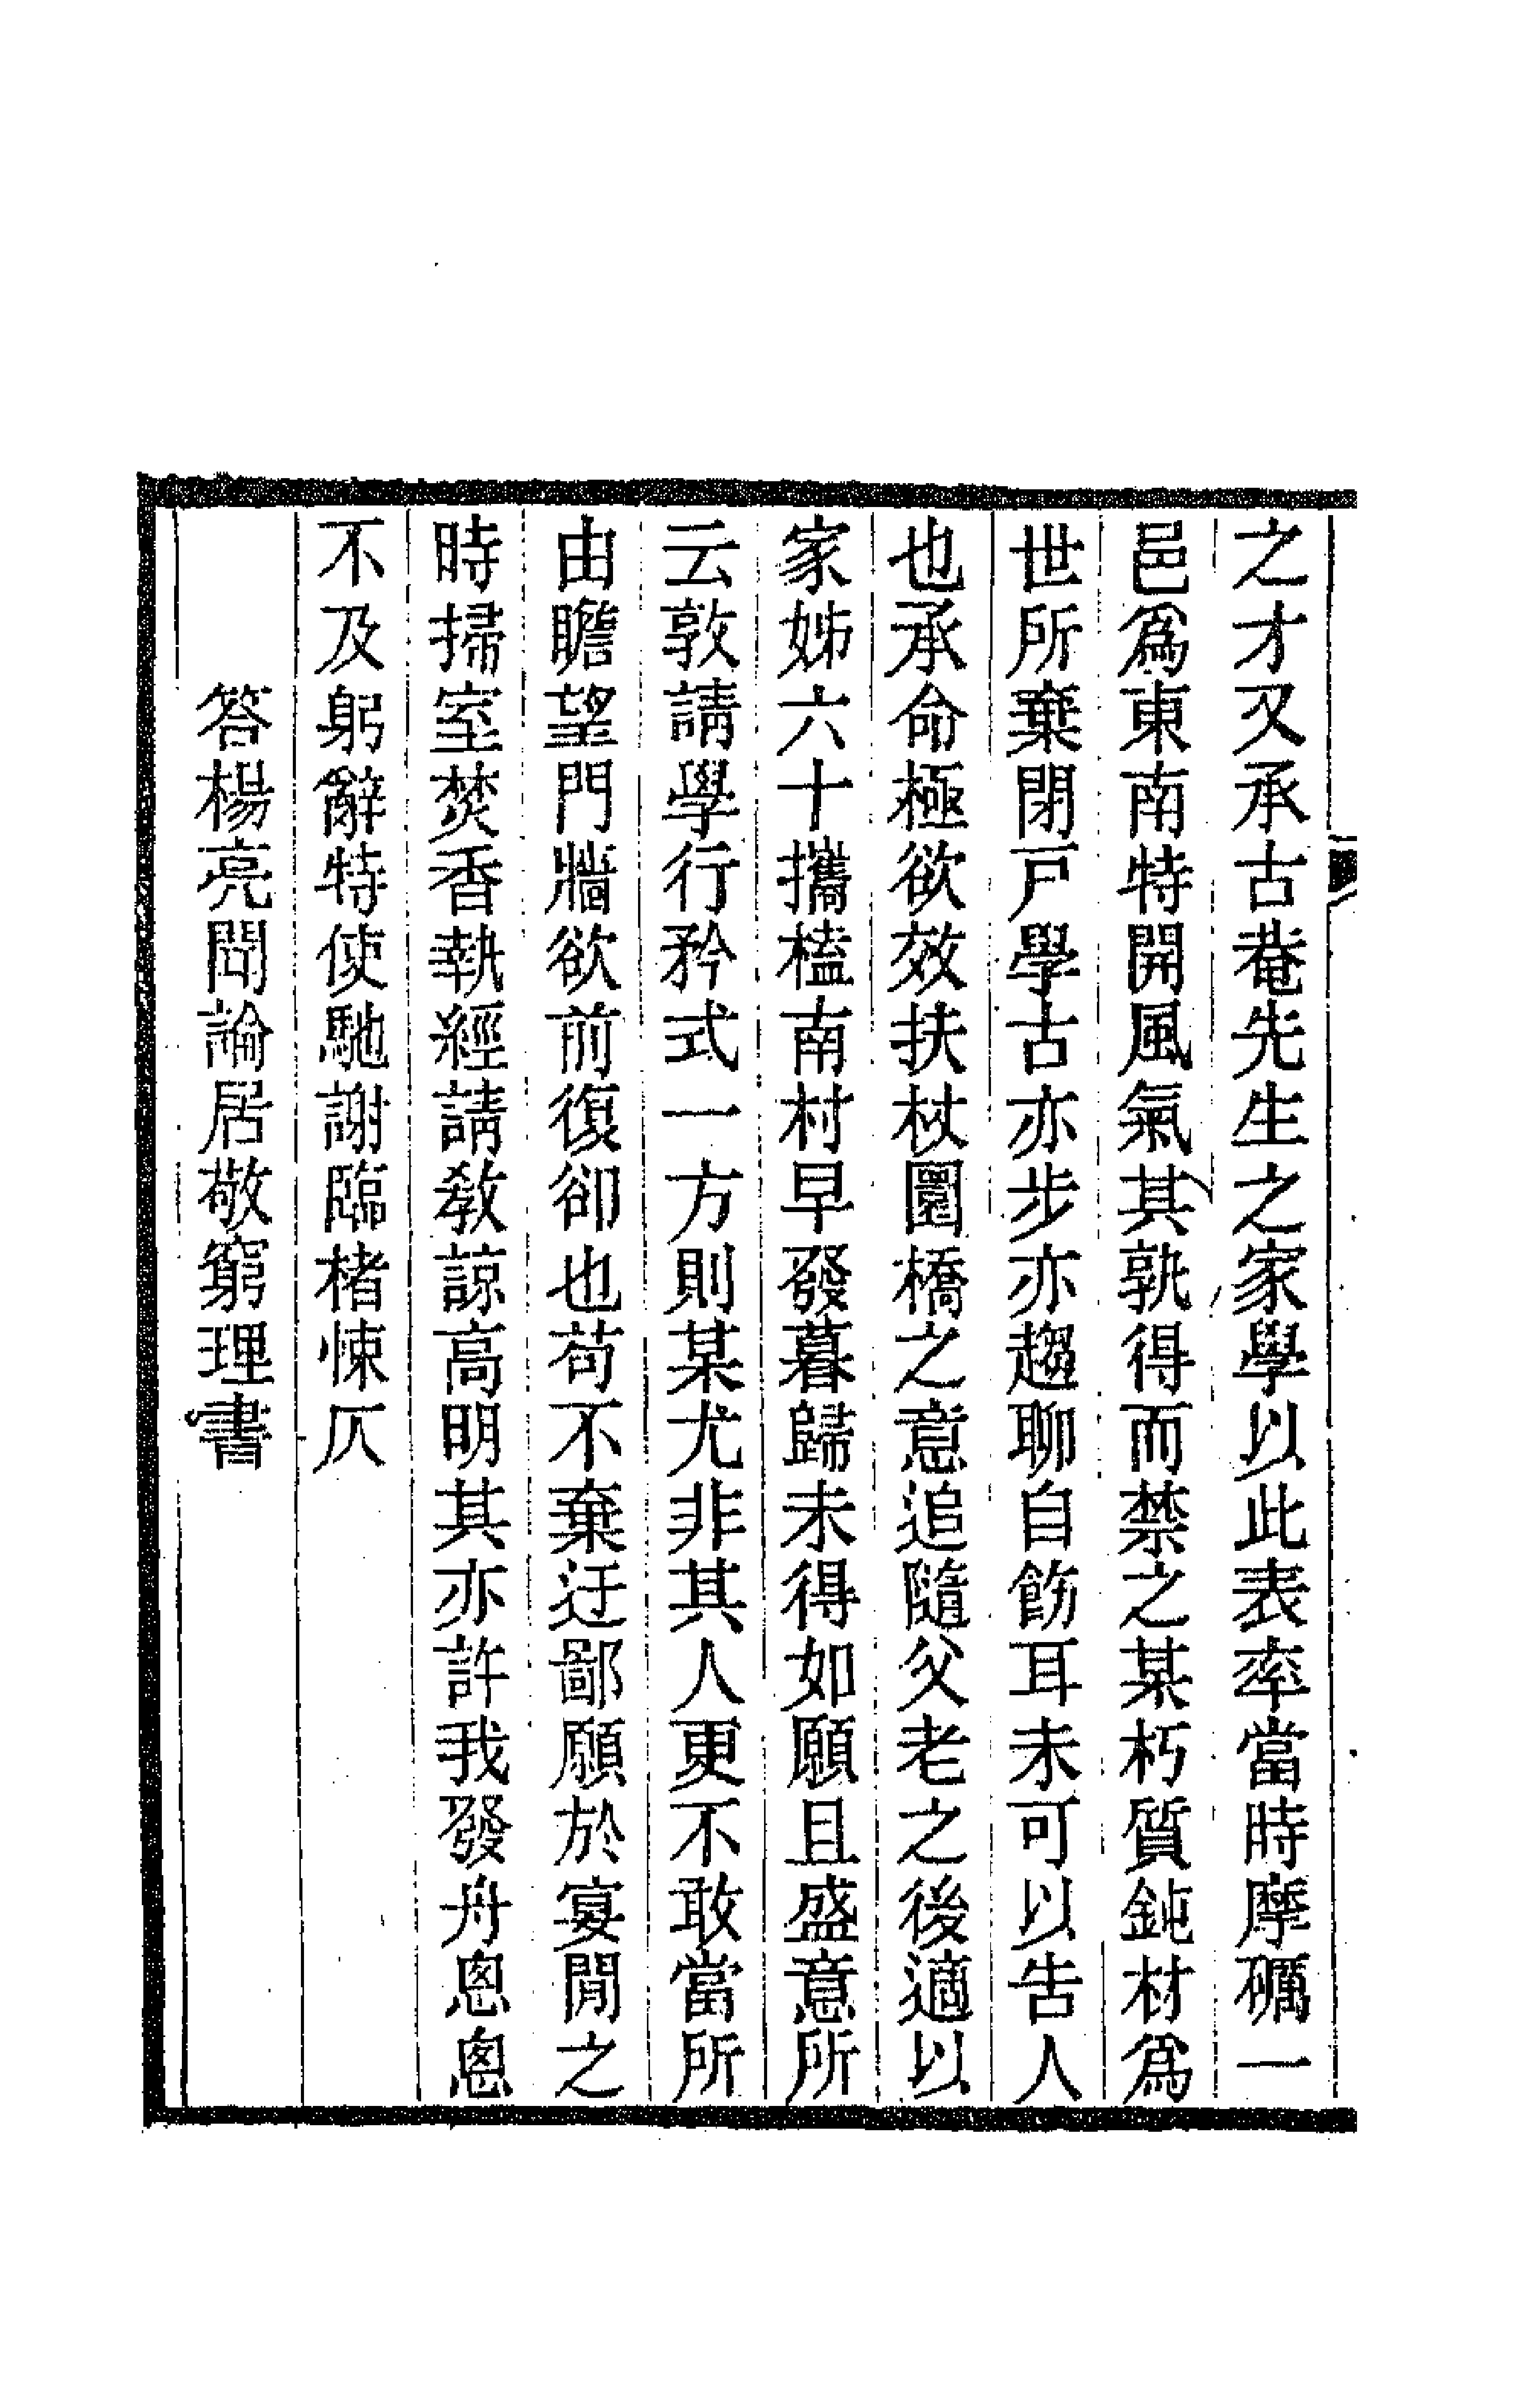 之才又承古菴先生之家學以此表率當時摩礪一
邑爲東南特開風氣其孰得而禁之某朽質鈍材爲
世所棄閉戸學古亦步亦趨聊自飭耳未可以告人
也承命極欲效扶杖圜橋之意追隨父老之後適以
家姊六十攜榼南村早發暮歸未得如願且盛意所
云敦請學行矜式一方則某尤非其人更不敢當所
由瞻望門牆欲前復卻也茍不棄迂鄙願於宴閒之
時掃室焚香執經請敎諒高明其亦許我發舟悤悤
不及躬辭特使馳謝臨楮悚仄
答楊亮聞論居敬窮理書